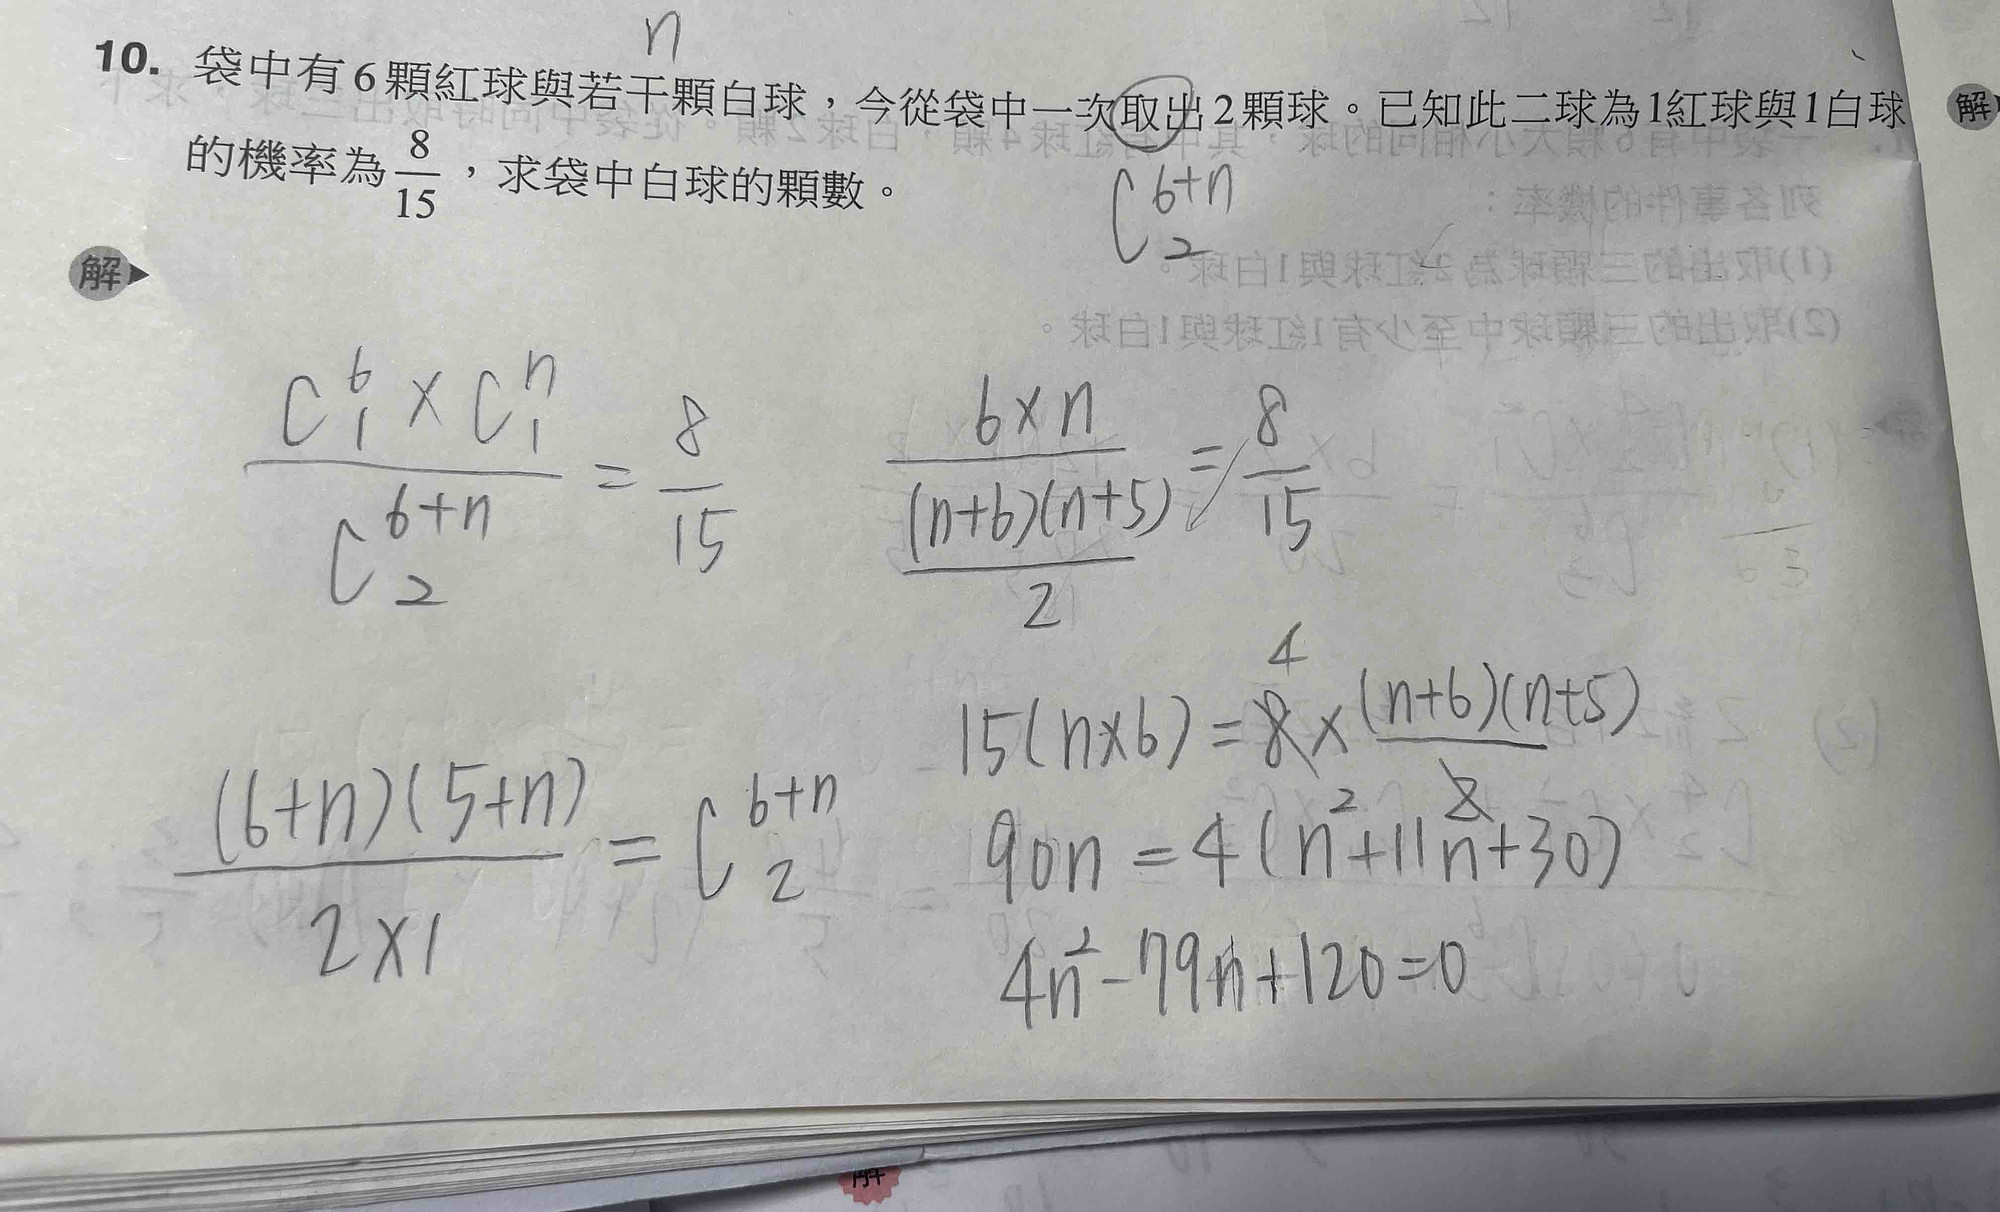 n
10. 袋中有6顆紅球與若干顆白球，今從袋中一次取出2顆球。已知此二球為1紅球與1白球
的機率為8/15，求袋中白球的顆數。
C^{6+n}_2
解
解
(C^6_1 × C^n_1)/(C^{6+n}_2) = 8/15
(6×n)/((n+6)(n+5)/2) = 8/15
((6+n)(5+n))/(2×1) = C^{6+n}_2
4
15(n×6) = 8 × (n+6)(n+5)/2
90n = 4(n²+11n+30)
4n²-79n+120=0
解